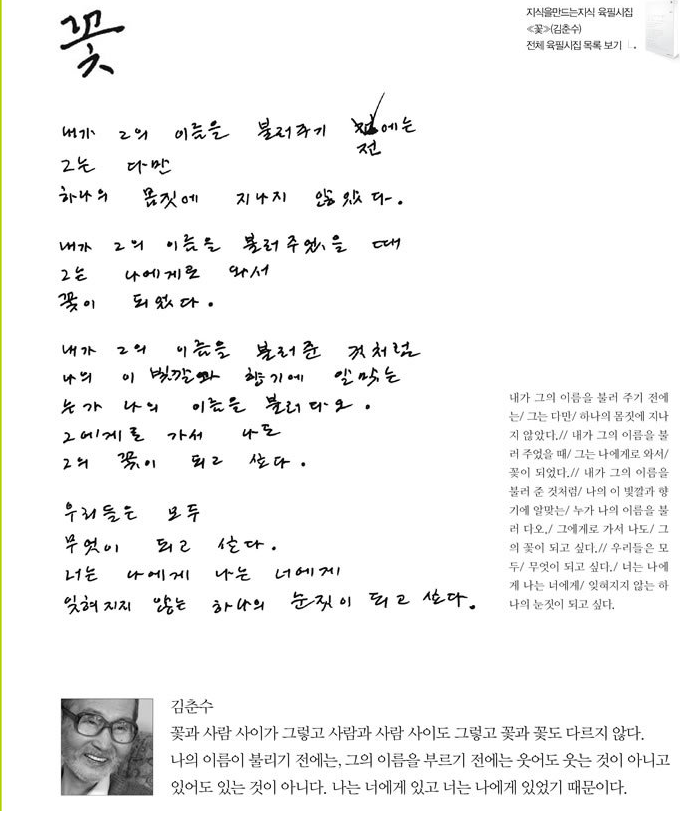 꽃
지식을만드는지식 육필시집
≪꽃≫(김춘수)
전체 육필시집 목록 보기
내가 그의 이름을 불러주기 전에는
그는 다만
하나의 몸짓에 지나지 않았다.
내가 그의 이름을 불러주었을 때
그는 나에게로 와서
꽃이 되었다.
내가 그의 이름을 불러준 것처럼
나의 이 빛깔과 향기에 알맞는
누가 나의 이름을 불러다오.
그에게로 가서 나도
그의 꽃이 되고 싶다.
우리들은 모두
무엇이 되고 싶다.
너는 나에게 나는 너에게
잊혀지지 않는 하나의 눈짓이 되고 싶다.
내가 그의 이름을 불러 주기 전에
는/ 그는 다만/ 하나의 몸짓에 지나
지 않았다.// 내가 그의 이름을 불
러 주었을 때/ 그는 나에게로 와서/
꽃이 되었다.// 내가 그의 이름을
불러 준 것처럼/ 나의 이 빛깔과 향
기에 알맞는/ 누가 나의 이름을 불
러 다오./ 그에게로 가서 나도/ 그
의 꽃이 되고 싶다.// 우리들은 모
두/ 무엇이 되고 싶다./ 너는 나에
게 나는 너에게/ 잊혀지지 않는 하
나의 눈짓이 되고 싶다.
김춘수
꽃과 사람 사이가 그렇고 사람과 사람 사이도 그렇고 꽃과 꽃도 다르지 않다.
나의 이름이 불리기 전에는, 그의 이름을 부르기 전에는 웃어도 웃는 것이 아니고
있어도 있는 것이 아니다. 나는 너에게 있고 너는 나에게 있었기 때문이다.